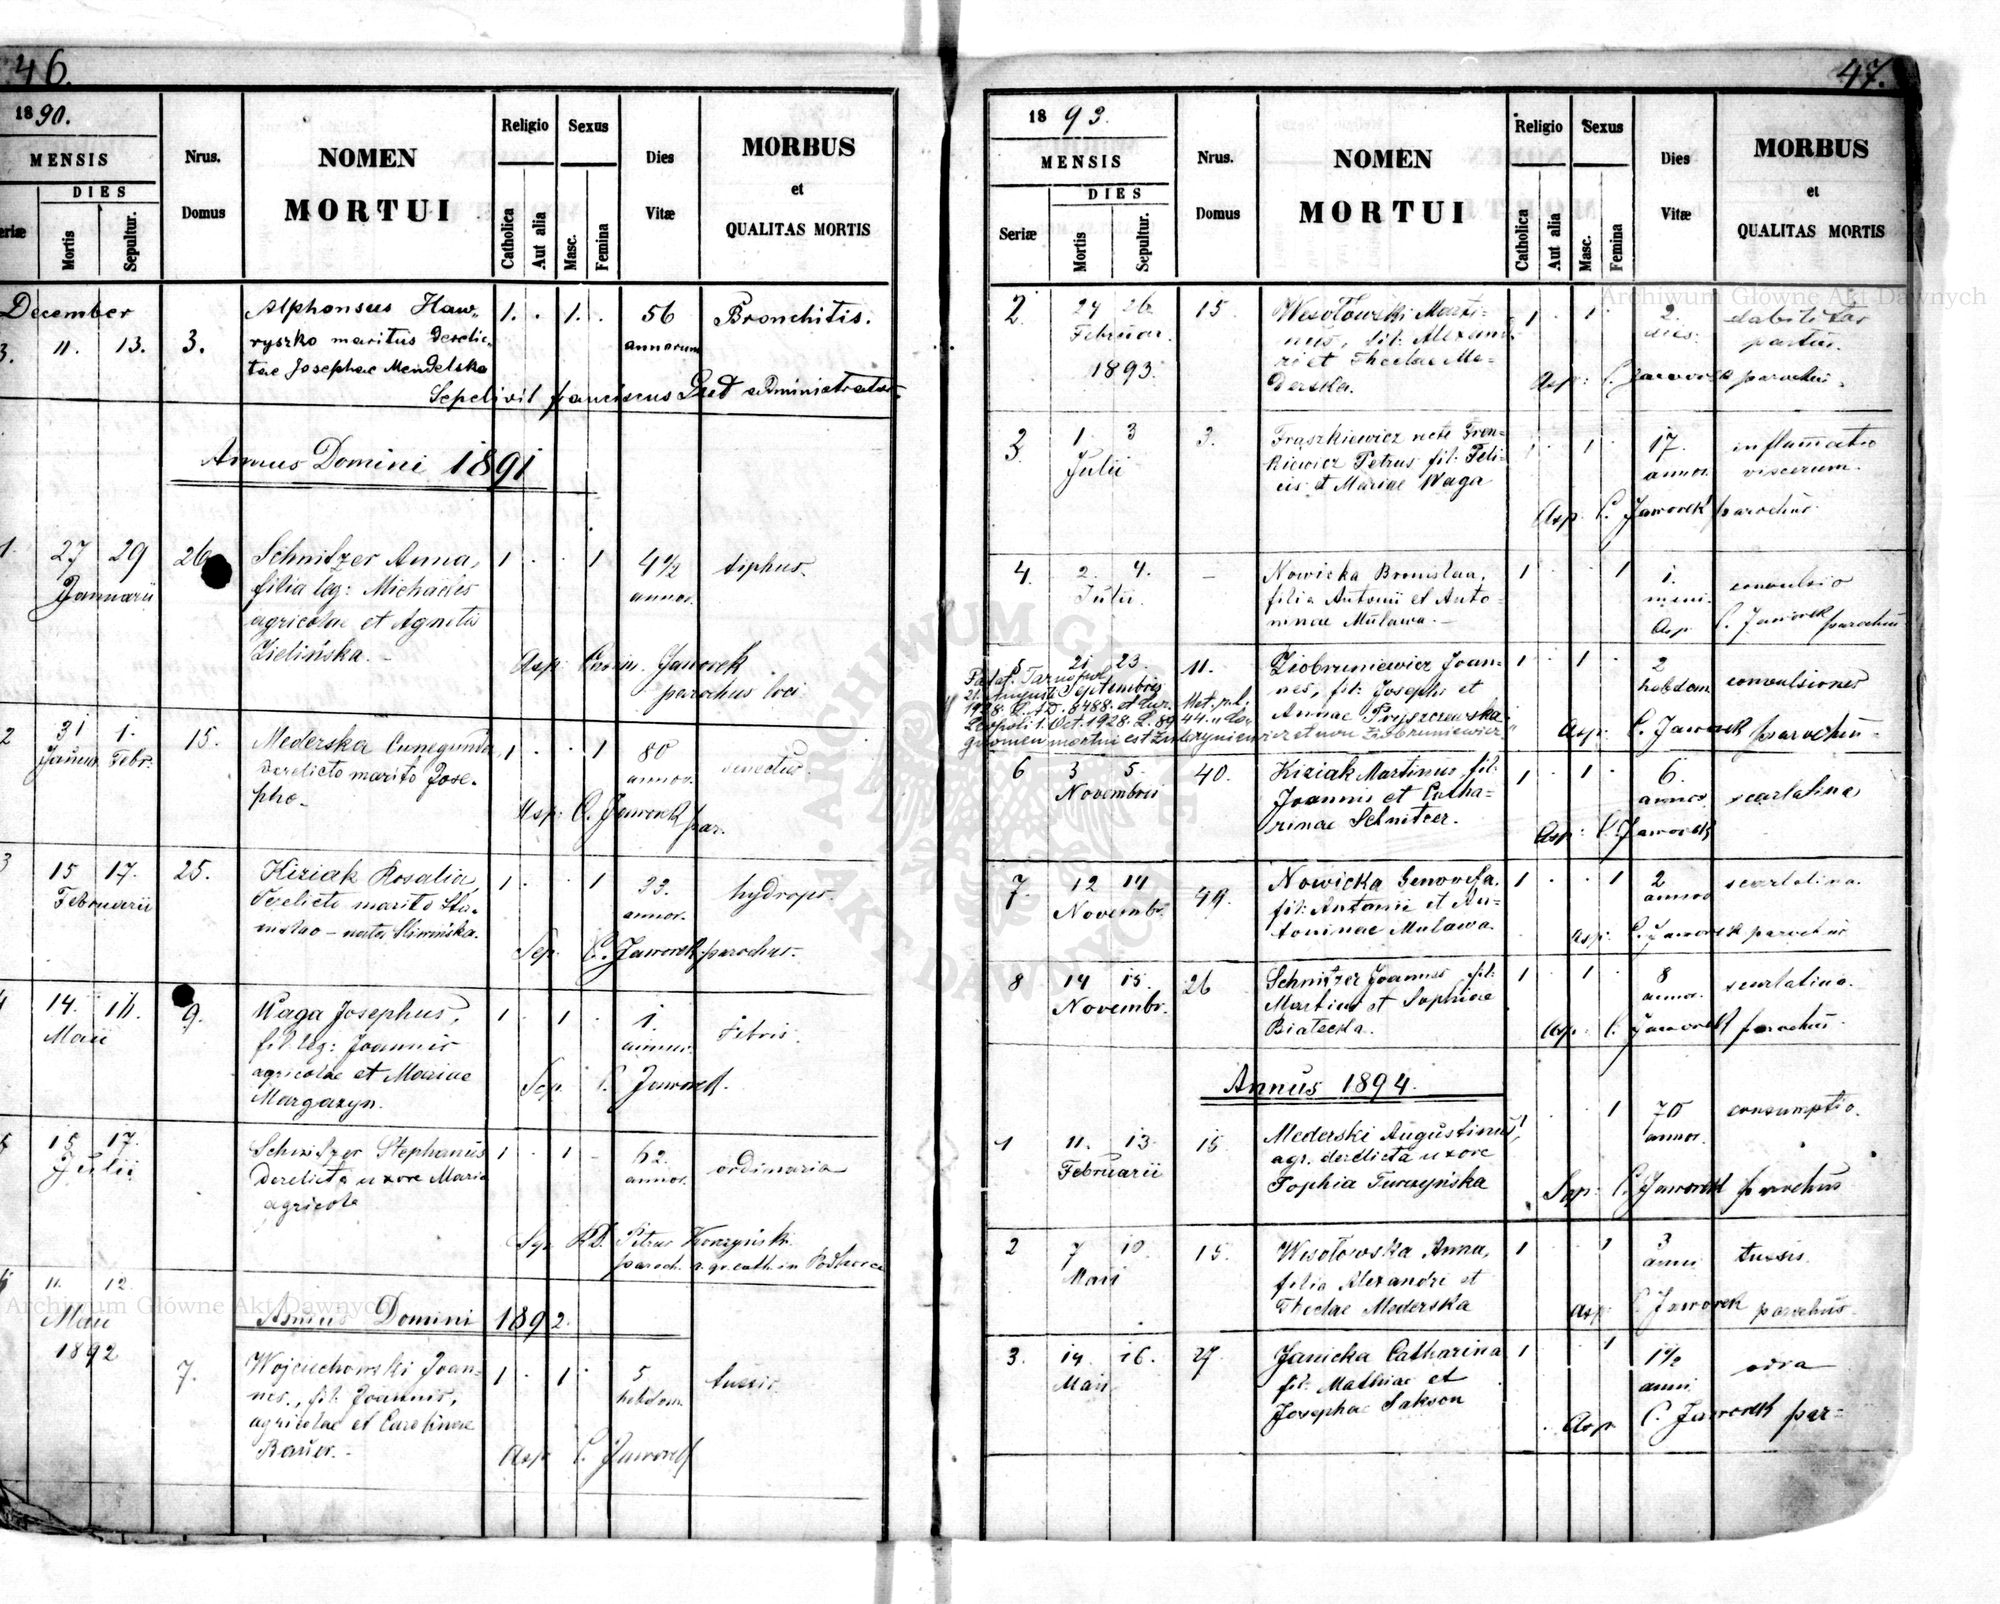 46.
1890.
MENSIS
DIES
Mortis
Sepultur.
Nrus.
Domus
NOMEN
MORTUI
Religio
Catholica
Aut alia
Sexus
Masc.
Femina
Dies
Vitæ
MORBUS
et
QUALITAS MORTIS
December
3. 11. 13. 3.
Alphonsus Haw-
ryszko maritus derelic-
tae Josephae Mendelska
1. . 1. .
56
annorum
Bronchitis.
Sepelivit franciscus administrator
Annus Domini 1891
1. 27 29 26
Januarii
Schnitzer Anna,
filia leg: Michaelis
agricolae et Agnetis
Zielińska.
1 . . 1
4 1/2
annor.
tiphus.
Asp: Jaworek
parochus loci
2 31 1. 15.
Januar Febr.
Mederska Cunegunda
derelicto marito Jose-
pho.
1 . . 1
80
annor.
senectus
Asp: C. Jaworek par.
3 15 17. 25.
Februarii
Kiziak Rosalia,
derelicto marito Sta-
nislao - nata Sliwińska.
1 . . 1
33.
annor.
hydrops.
Sep: C. Jaworek parochus.
14. 16. 9.
Maii
Waga Josephus,
fil. leg: Joannis
agricolae et Mariae
Margazyn.
1 . 1 .
1.
annus.
febris.
Sep C. Jaworek.
15 17.
Julii
Schnitzer Stephanus
derelicta uxore Maria
agricola
1 . 1 .
62.
annor.
ordinaria
Sep. R.D. Petrus
paroch. r. gr. cath. in
11. 12.
Maii
1892
7.
Annus Domini 1892.
Wojciechowski Joan-
nes, fil: Joannis,
agricolae et Carolinae
Bauer.
1 . 1 .
5
hebdom.
tussis.
Asp C. Jaworek
47.
1893.
MENSIS
DIES
Seriæ
Mortis
Sepultur.
Nrus.
Domus
NOMEN
MORTUI
Religio
Catholica
Aut alia
Sexus
Masc.
Femina
Dies
Vitæ
MORBUS
et
QUALITAS MORTIS
2. 24 26 15.
Februar.
1893.
Wesołowski Marti-
nus, fil: Alexand-
ri et Theclae Me-
derska.
1 . 1 .
2.
dies.
debilitas
partus.
Asp: C. Jaworek parochus.
3. 1. 3 3.
Julii
Fraszkiewicz recte Fron-
kiewicz Petrus fil. Feli-
cis et Mariae Waga
1 . 1
17.
annor.
inflamatio
viscerum.
Asp. C. Jaworek parochus
4. 2. 4. -
Julii.
Nowicka Bronislaa,
filia Antonii et Anto-
ninae Mulawa.
1 . . 1
1.
mens.
convulsio
Asp C. Jaworek parochus
5 21 23. 11.
Septembris
Ziobruniewicz Joan-
nes, fil: Josephi et
Annae Pryszczewska
1 . 1 .
2
hebdom
convulsiones
Asp: C. Jaworek parochus
6 3 5. 40.
Novembris
Kiziak Martinus, fil:
Joannis et Catha-
rinae Schnitzer.
1 . 1 .
6.
annor.
scarlatina
Asp: C. Jaworek
7. 12 14 49.
Novembr.
Nowicka Genovefa,
fil: Antonii et An-
toninae Mulawa.
1 . . 1
2
annor
scarlatina.
Asp: C. Jaworek parochus
8 14 15. 26
Novembr.
Schnitzer Joannes fil:
Martini et Sophiae
Białecka.
1 . 1 .
8
annor.
scarlatina.
Asp: C. Jaworek parochus.
Annus 1894.
1 11. 13. 15
Februarii
Mederski Augustinus,
agr. derelicta uxore
Sophia Turczyńska
1 . . 1
70
annor.
consumptio.
Sep: C. Jaworek parochus
2 7 10. 15.
Maii
Wesołowska Anna,
filia Alexandri et
Theclae Mederska
1 . . 1
3
anni
tussis.
Asp: C. Jaworek parochus.
3. 14. 16. 27.
Maii
Janicka Catharina
fil: Mathiae et
Josephae Sakson
1 . . 1
1 1/2
anni.
Asp C. Jaworek par-
Archiwum Główne Akt Dawnych
Archiwum Główne Akt Dawnych